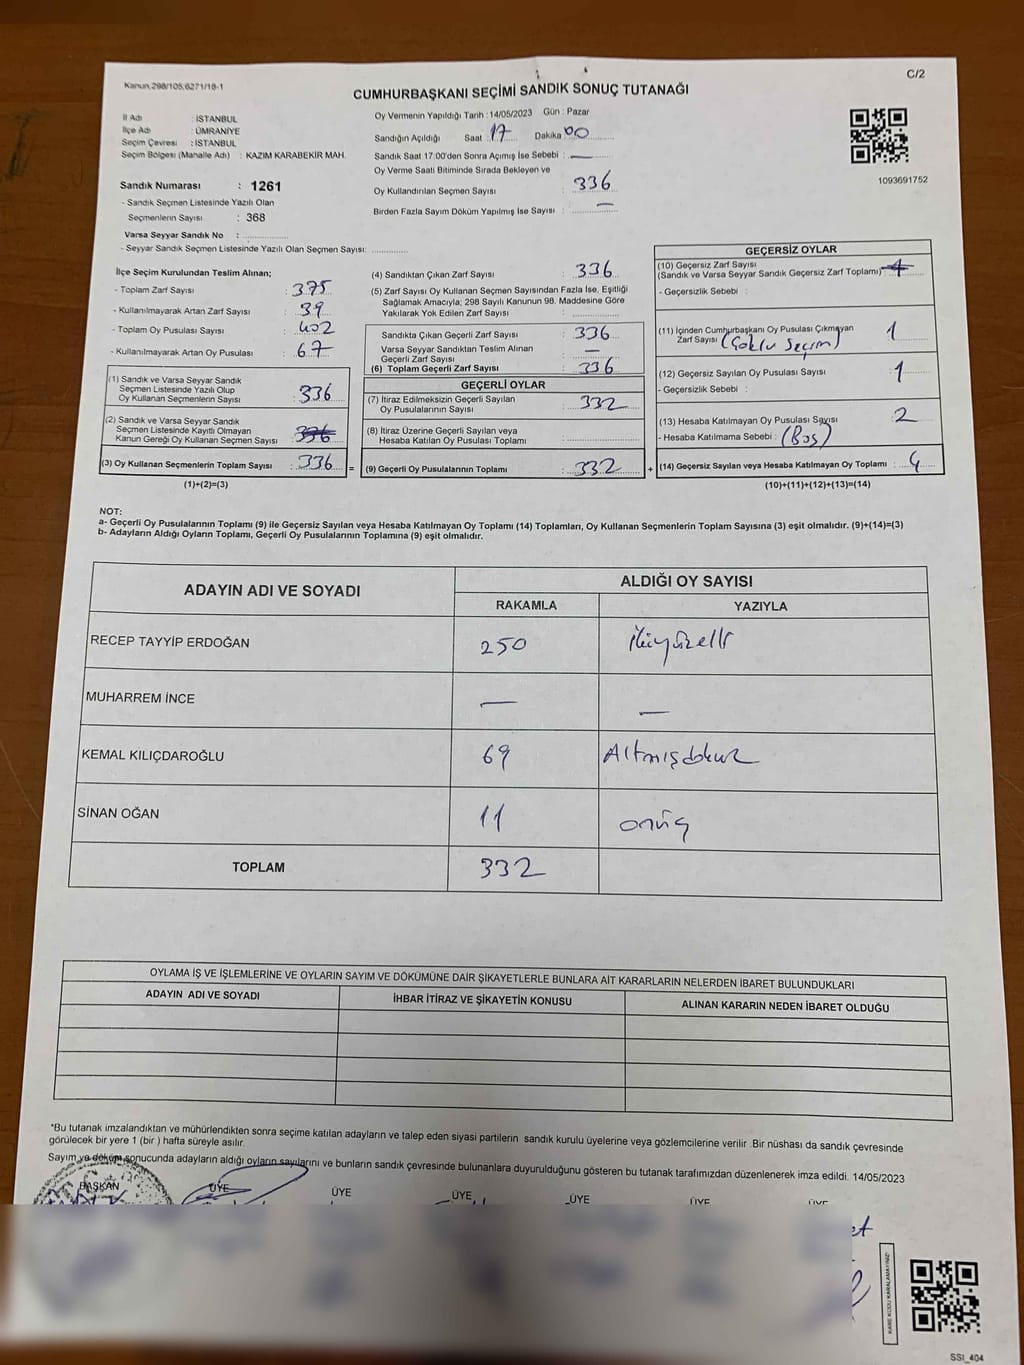 C/2
Kanun,298/105,6271/18-1
CUMHURBAŞKANI SEÇİMİ SANDIK SONUÇ TUTANAĞI
İl Adı : İSTANBUL
İlçe Adı : ÜMRANİYE
Seçim Çevresi : İSTANBUL
Seçim Bölgesi (Mahalle Adı) : KAZIM KARABEKİR MAH.
Sandık Numarası : 1261
- Sandık Seçmen Listesinde Yazılı Olan
Seçmenlerin Sayısı : 368
Varsa Seyyar Sandık No :
- Seyyar Sandık Seçmen Listesinde Yazılı Olan Seçmen Sayısı:
Oy Vermenin Yapıldığı Tarih : 14/05/2023 Gün : Pazar
Sandığın Açıldığı Saat : 17 Dakika 00
Sandık Saat 17:00'den Sonra Açımış İse Sebebi : —
Oy Verme Saati Bitiminde Sırada Bekleyen ve
Oy Kullandırılan Seçmen Sayısı : 336
Birden Fazla Sayım Döküm Yapılmış İse Sayısı : —
1093691752
İlçe Seçim Kurulundan Teslim Alınan;
- Toplam Zarf Sayısı : 375
- Kullanılmayarak Artan Zarf Sayısı : 39
- Toplam Oy Pusulası Sayısı : 402
- Kullanılmayarak Artan Oy Pusulası : 67
(1) Sandık ve Varsa Seyyar Sandık
Seçmen Listesinde Yazılı Olup
Oy Kullanan Seçmenlerin Sayısı : 336
(2) Sandık ve Varsa Seyyar Sandık
Seçmen Listesinde Kayıtlı Olmayan
Kanun Gereği Oy Kullanan Seçmen Sayısı : 336
(3) Oy Kullanan Seçmenlerin Toplam Sayısı : 336 =
(1)+(2)=(3)
(4) Sandıktan Çıkan Zarf Sayısı : 336
(5) Zarf Sayısı Oy Kullanan Seçmen Sayısından Fazla İse, Eşitliği
Sağlamak Amacıyla; 298 Sayılı Kanunun 98. Maddesine Göre
Yakılarak Yok Edilen Zarf Sayısı :
Sandıkta Çıkan Geçerli Zarf Sayısı : 336
Varsa Seyyar Sandıktan Teslim Alınan
Geçerli Zarf Sayısı : —
(6) Toplam Geçerli Zarf Sayısı : 336
GEÇERLİ OYLAR
(7) İtiraz Edilmeksizin Geçerli Sayılan
Oy Pusulalarının Sayısı : 332
(8) İtiraz Üzerine Geçerli Sayılan veya
Hesaba Katılan Oy Pusulası Toplamı :
(9) Geçerli Oy Pusulalarının Toplamı : 332 +
GEÇERSİZ OYLAR
(10) Geçersiz Zarf Sayısı
(Sandık ve Varsa Seyyar Sandık Geçersiz Zarf Toplamı) :
- Geçersizlik Sebebi :
(11) İçinden Cumhurbaşkanı Oy Pusulası Çıkmayan
Zarf Sayısı (Çoklu Seçim) 1
(12) Geçersiz Sayılan Oy Pusulası Sayısı : 1
- Geçersizlik Sebebi :
(13) Hesaba Katılmayan Oy Pusulası Sayısı 2
- Hesaba Katılmama Sebebi : (Boş)
(14) Geçersiz Sayılan veya Hesaba Katılmayan Oy Toplamı : 4
(10)+(11)+(12)+(13)=(14)
NOT:
a- Geçerli Oy Pusulalarının Toplamı (9) ile Geçersiz Sayılan veya Hesaba Katılmayan Oy Toplamı (14) Toplamları, Oy Kullanan Seçmenlerin Toplam Sayısına (3) eşit olmalıdır. (9)+(14)=(3)
b- Adayların Aldığı Oyların Toplamı, Geçerli Oy Pusulalarının Toplamına (9) eşit olmalıdır.
ADAYIN ADI VE SOYADI ALDIĞI OY SAYISI
RAKAMLA YAZIYLA
RECEP TAYYİP ERDOĞAN 250 İkiyüzelli
MUHARREM İNCE — —
KEMAL KILIÇDAROĞLU 69 Altmışdokuz
SİNAN OĞAN 11 onüç
TOPLAM 332
OYLAMA İŞ VE İŞLEMLERİNE VE OYLARIN SAYIM VE DÖKÜMÜNE DAİR ŞİKAYETLERLE BUNLARA AİT KARARLARIN NELERDEN İBARET BULUNDUKLARI
ADAYIN ADI VE SOYADI İHBAR İTİRAZ VE ŞİKAYETİN KONUSU ALINAN KARARIN NEDEN İBARET OLDUĞU
*Bu tutanak imzalandıktan ve mühürlendikten sonra seçime katılan adayların ve talep eden siyasi partilerin sandık kurulu üyelerine veya gözlemcilerine verilir .Bir nüshası da sandık çevresinde
görülecek bir yere 1 (bir ) hafta süreyle asılır.
Sayım ve döküm sonucunda adayların aldığı oyların sayılarını ve bunların sandık çevresinde bulunanlara duyurulduğunu gösteren bu tutanak tarafımızdan düzenlenerek imza edildi. 14/05/2023
BAŞKAN ÜYE ÜYE ÜYE ÜYE ÜYE ÜYE
KARE KODU KARALAMAYINIZ!
SSI_404